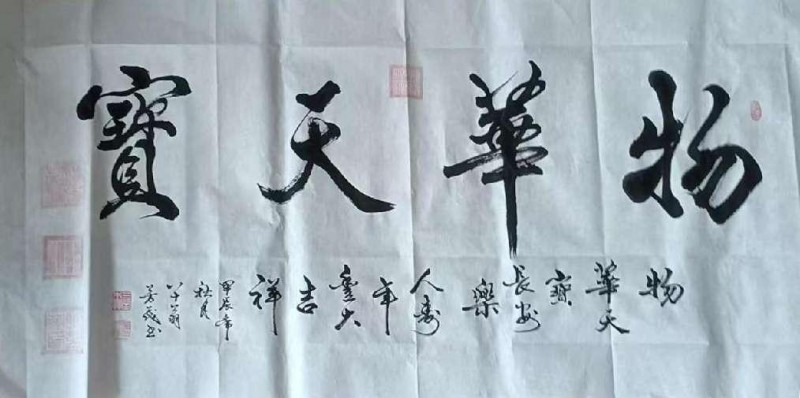 物華天寶
物
華天
寶
長安
樂
人壽
年
豐大
吉
祥
甲辰年
秋月
八十翁
書